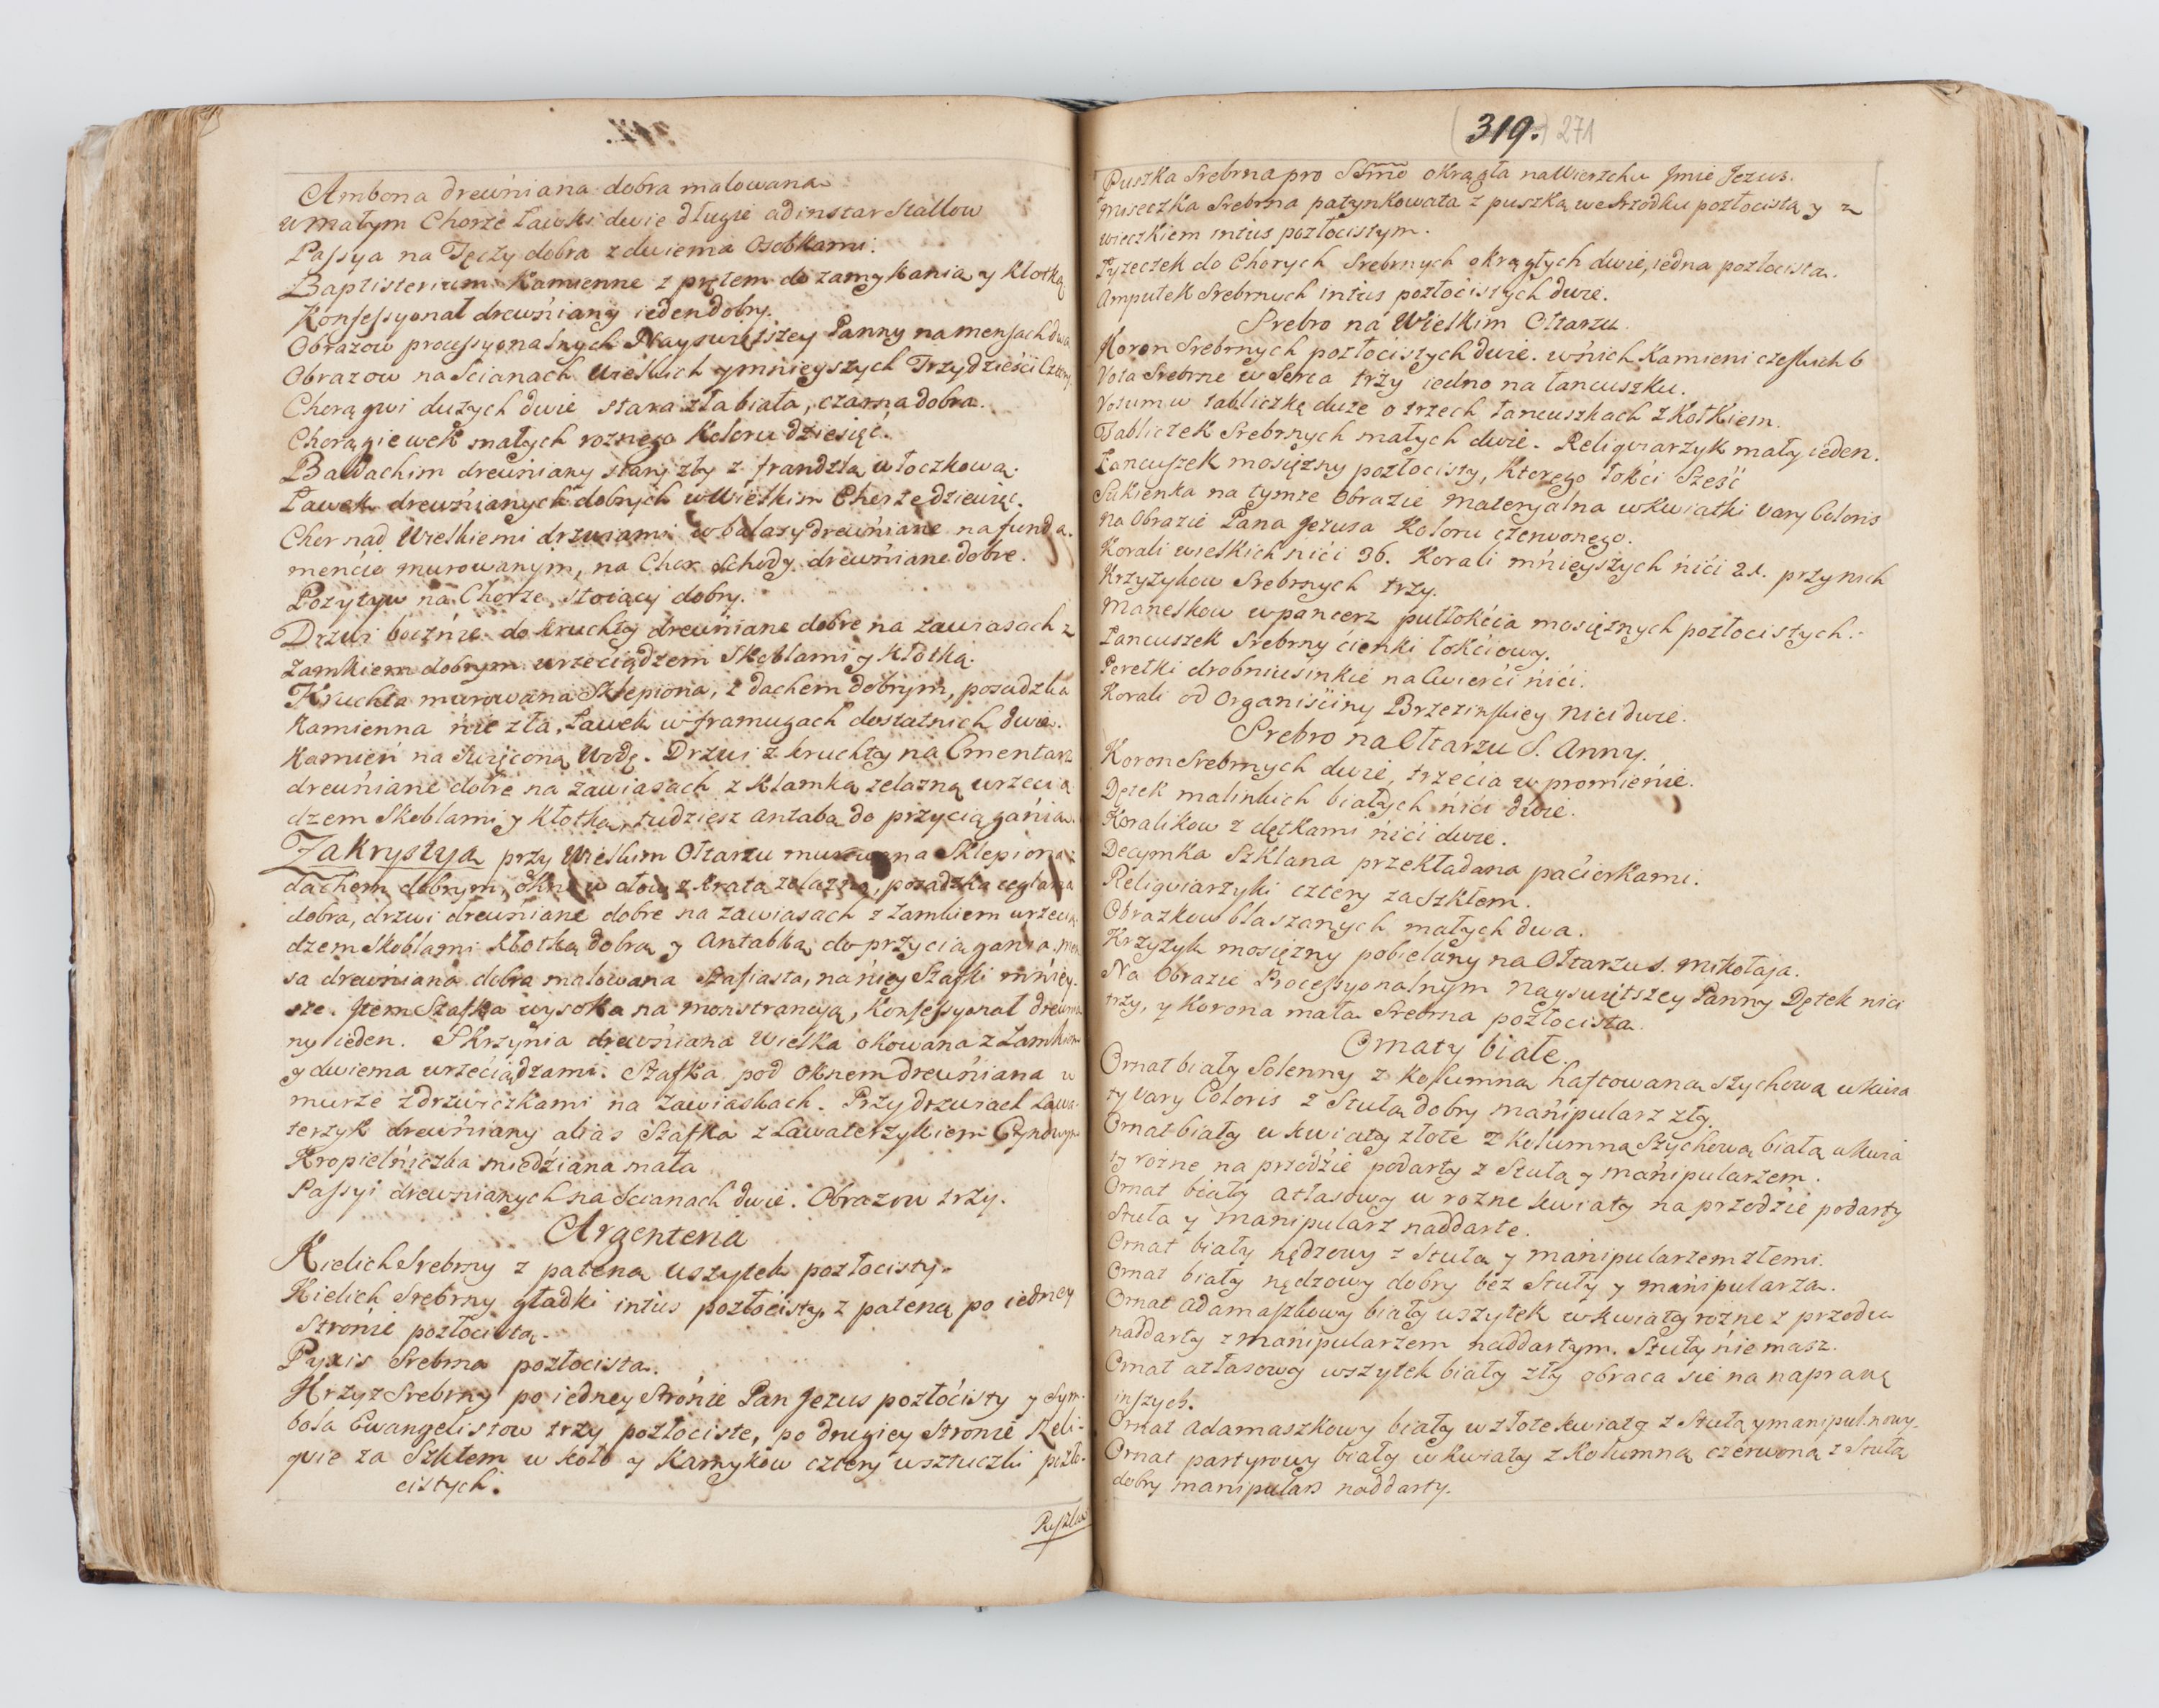 Ambona drewniana dobra malowana
w małym Chorze Ławki dwie długie ad instar Stallow
Passya na Tęczy dobra z dwiema Osobkami.
Baptisterium Kamienne z prętem do zamykania y Kłotką
Konfessyonał drewniany ieden dobry.
Obrazow processyonalnych Nayswiętszey Panny na mensach dwa
Obrazow na Scianach Wielkich y mnieyszych Trzydzieści Cztery
Chorągwi dużych dwie stara zła biała, czarna dobra.
Chorągiewek małych roznego Koloru dziesięć.
Baldachim drewniany stary zły z frandzlą włoczkową.
Ławek drewnianych dobrych w Wielkim Chorze dziewięć.
Chor nad Wielkiemi drzwiami w balasy drewniane na funda-
mencie murowanym, na Chor Schody drewniane dobre.
Pozytyw na Chorze stoiący dobry.
Drzwi boczne do kruchty drewniane dobre na zawiasach z
zamkiem dobrym wrzeciądzem Skoblami y Kłotką.
Kruchta murowana Sklepiona, z dachem dobrym, posadzka
Kamienna nie zła, Ławek w framugach dostatnich dwie.
Kamień na Swięconą Wodę. Drzwi z kruchty na Cmentarz
drewniane dobre na zawiasach z Klamką zelazną wrzecią
dzem Skoblami y Kłotką, tudziesz antabą do przyciągania.
Zakrystya przy Wielkim Ołtarzu murowana Sklepiona z
dachem dobrym, okno w ołow z Kratą zelazną, posadzka ceglana
dobra, drzwi drewniane dobre na zawiasach z zamkiem wrzecią-
dzem Skoblami Kłotką dobrą y Antabką do przyciągania. Men
sa drewniana dobra malowana Szafiasta, na niey Szafki mniey-
sze. Item Szafka wysoka na monstrancyą, Konfessyonał drewnia
ny ieden. Skrzynia drewniana Wielka okowana z Zamkiem
y dwiema wrzeciądzami. Szafka pod oknem drewniana w
murze z drzwiczkami na zawiaskach. Przy drzwiach Lawa-
terzyk drewniany alias Szafka z Lawaterzykiem Cynowym
Kropielniczka miedziana mała
Passyi drewnianych na Scianach dwie. Obrazow trzy.
Argenteria
Kielich Srebrny z pateną wszytek pozłocisty.
Kielich Srebrny gładki intus pozłocisty, z pateną po iedney
Stronie pozłocistą.
Pyxis Srebrna pozłocista.
Krzyz Srebrny po iedney Stronie Pan Jezus pozłocisty y Sym-
bola Ewangelistow trzy pozłociste, po drugiey Stronie Reli-
qwie za Szkłem w koło y Kamykow cztery w sztuczki pozło-
cistych.
Puszka
319. 271
Puszka Srebrna pro SSmo okrągła na Wierzchu Jmie Jezus.
Miseczka Srebrna patynkowata z puszką we Srzodku pozłocistą y z
wieczkiem intus pozłocistym.
Łyzeczek do Chorych Srebrnych okrągłych dwie, iedna pozłocista.
Ampułek Srebrnych intus pozłocistych dwie.
Srebro na Wielkim Ołtarzu.
Koron Srebrnych pozłocistych dwie. w nich Kamieni czeskich 6
Vota Srebrne w Serca trzy iedno na łancuszku.
Votum w tabliczkę duże o trzech łancuszkach z Kotkiem.
Tabliczek Srebrnych małych dwie. Religwiarzyk mały ieden.
Łancuszek mosiężny pozłocisty, Ktorego łokci Sześć
Sukienka na tymze Obrazie materyalna w kwiatki vary Coloris
Na Obrazie Pana Jezusa Koloru czerwonego.
Korali wielkich nici 36. Korali mnieyszych nici 21. przy nich
Krzyzykow Srebrnych trzy.
Maneskow w pancerz pułłokcia mosiężnych pozłocistych.
Łancuszek Srebrny cienki łokciowy.
Perełki drobniusinkie na Cwierć nici.
Korali od Organisciny Brzezinskiey nici dwie.
Srebro na Ołtarzu S. Anny.
Koron Srebrnych dwie, trzecia w promienie.
Dętek malinkich białych nici dwie.
Koralikow z dętkami nici dwie.
Decymka Szklana przekładana pacierkami.
Religwiarzyki cztery za Szkłem.
Obrazkow blaszanych małych dwa.
Krzyzyk mosiężny pobielany na Ołtarzu S. Mikołaja.
Na Obrazie Processyonalnym Nayswiętszey Panny Dętek nici
trzy, y Korona mała Srebrna pozłocista.
Ornaty białe.
Ornat biały Solenny z kolumną haftowaną sztychową w kwia
ty vary Coloris z Stułą dobry manipularz zły.
Ornat biały w kwiaty złote z kolumną Sztychową białą w kwia
ty rozne na przodzie podarty z Stułą y manipularzem.
Ornat biały atłasowy w rozne kwiaty na przodzie podarty
Stuła y manipularz naddarte.
Ornat biały nędzowy z Stułą y manipularzem złemi.
Ornat biały nędzowy dobry bez Stuły y manipularza.
Ornat adamaszkowy biały wszytek w kwiaty rozne z przodu
naddarty z manipularzem naddartym. Stuły nie masz.
Ornat atłasowy wszytek biały zły obraca sie na naprawę
inszych.
Ornat adamaszkowy biały w złote kwiaty z Stułą y manipul. nowy.
Ornat partyrowy biały w kwiaty z Kolumną czerwoną z Stułą
dobry manipularz naddarty.